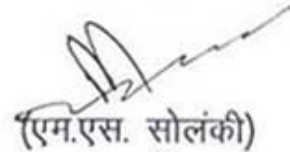 (एम.एस. सोलंकी)